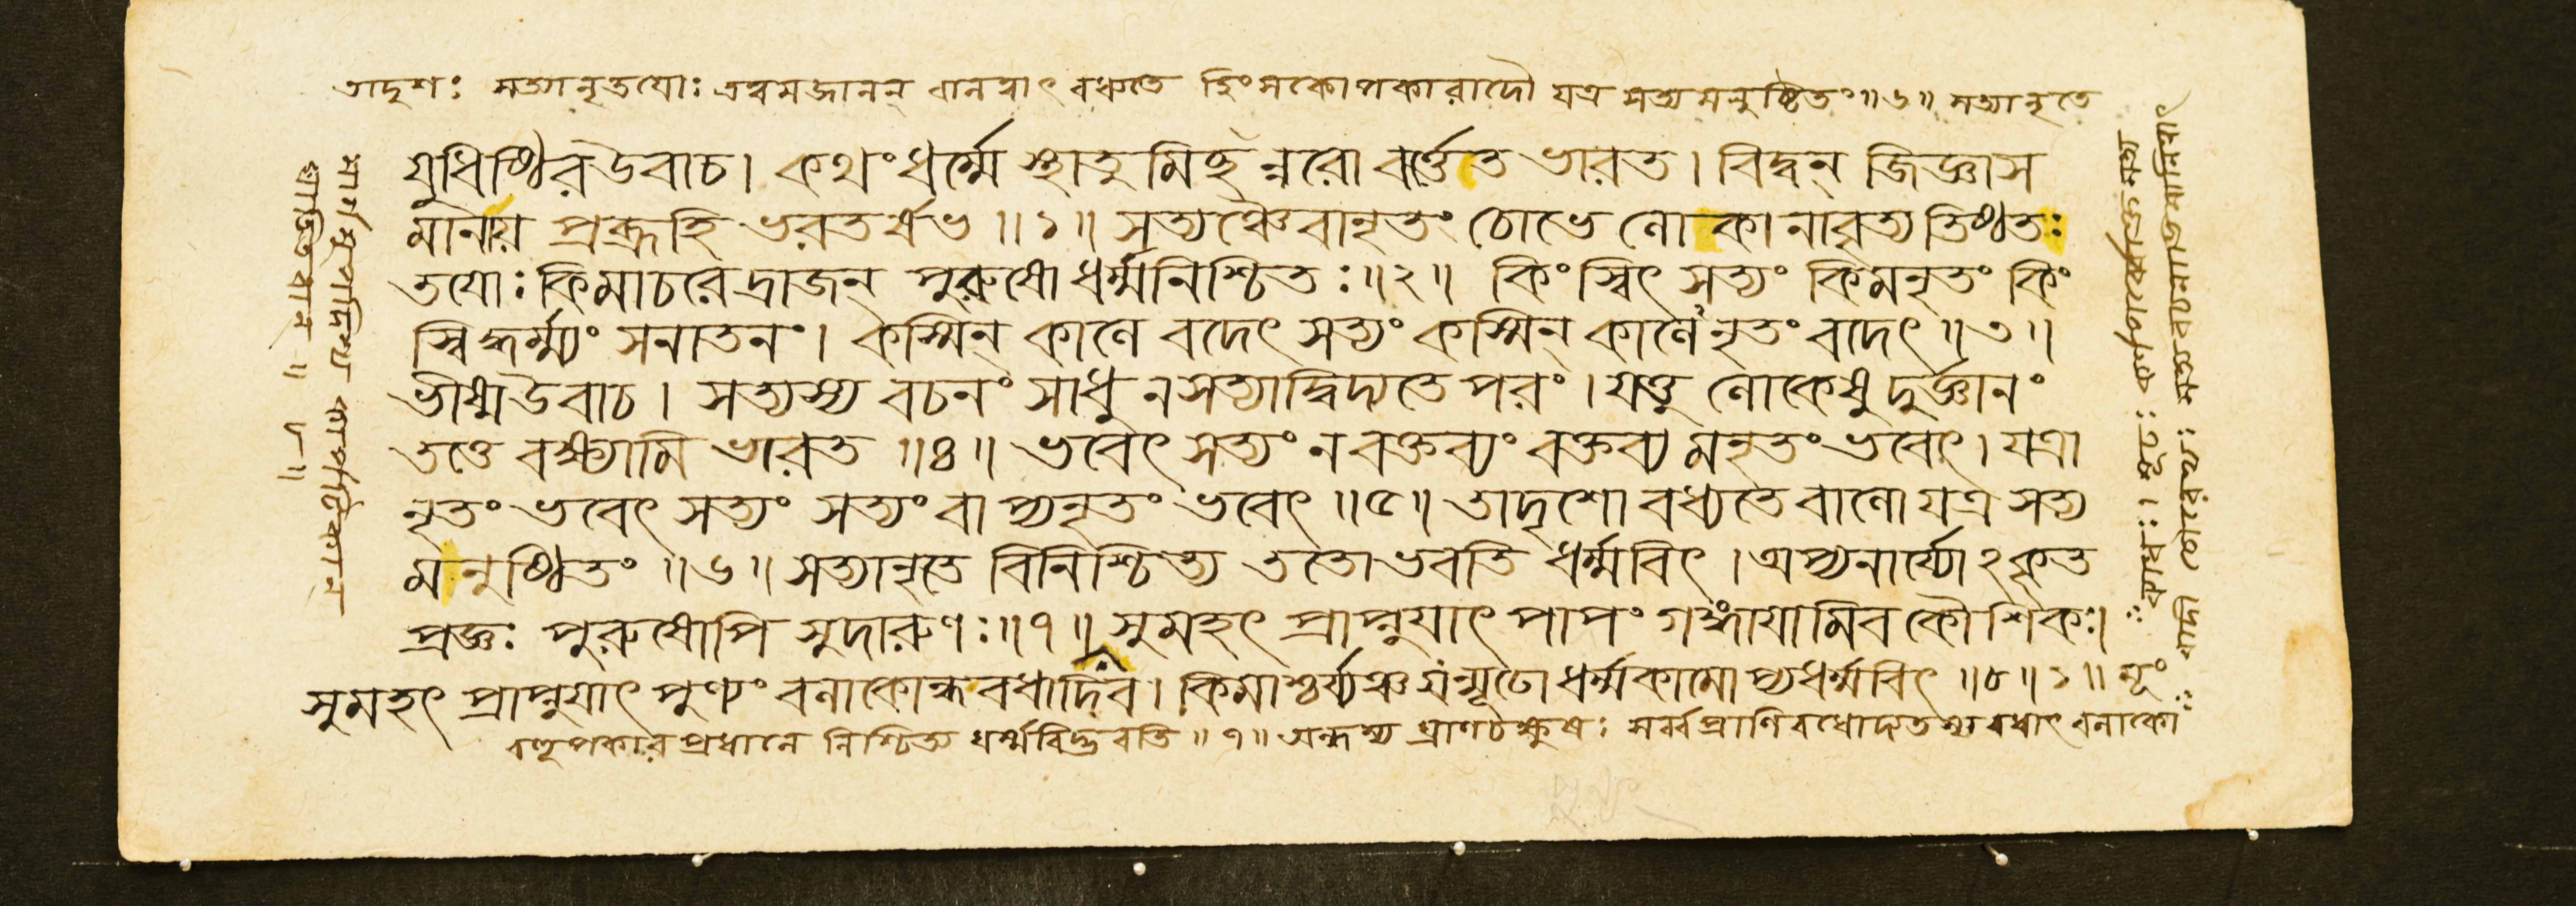 তাদৃশঃ সত্যানৃতযোঃ তত্ত্বমজানন্ বালত্বাৎ বধ্যতে হিংসকোপকারাদৌ যত্র সত্যমনুষ্ঠিতং॥৬॥ সত্যানৃতে
যুধিষ্ঠিরউবাচ। কথংধর্ম্মে স্থাতুমিচ্ছন্নরো বর্ত্তেত ভারত। বিদ্বন্ জিজ্ঞাস
মানায় প্রব্রূহি ভরতর্ষভ॥১॥ সত্যঞ্চৈবানৃতং চোভে লোকানাবৃত্যতিষ্ঠতঃ
তযোঃকিমাচরেদ্রাজন্ পুরুষোধর্ম্মনিশ্চিতঃ॥২॥ কিংস্বিৎ সত্যং কিমনৃতং কিং
স্বিদ্ধর্ম্ম্যং সনাতনং। কস্মিন্ কালে বদেৎ সত্যং কস্মিন্ কালেনৃতং বদেৎ॥৩॥
ভীষ্মউবাচ। সত্যস্য বচনং সাধু নসত্যাদ্বিদ্যতে পরং। যত্তু লোকেষু দুর্জ্ঞানং
তত্তে বক্ষ্যামি ভারত॥৪॥ ভবেৎ সত্যং নবক্তব্যং বক্তব্যমনৃতং ভবেৎ। যত্রা
নৃতং ভবেৎ সত্যং সত্যং বাপ্যনৃতং ভবেৎ॥৫॥ তাদৃশো বধ্যতে বালো যত্র সত্য
মনুষ্ঠিতং॥৬॥ সত্যানৃতে বিনিশ্চিত্য ততোভবতি ধর্ম্মবিৎ। অপ্যনার্য্যোঽকৃত
প্রজ্ঞঃ পুরুষোপি সুদারুণঃ॥৭॥ সুমহৎ প্রাপ্নুযাৎ পাপং গঙ্গাযামিব কৌশিকঃ।
সুমহৎ প্রাপ্নুযাৎ পুণ্যং বলাকোন্ধবধাদিব। কিমাশ্চর্য্যঞ্চযন্মূঢো ধর্ম্মকামোপ্যধর্ম্মবিৎ॥৮॥১॥
বহূপকারপ্রধানে নিশ্চিত্য ধর্ম্মবিদ্ভবতি॥৭॥ অন্ধস্য ঘ্রাণচক্ষুষঃ সর্ব্বপ্রাণিবধোদ্যতস্য বধাৎ বলাকো